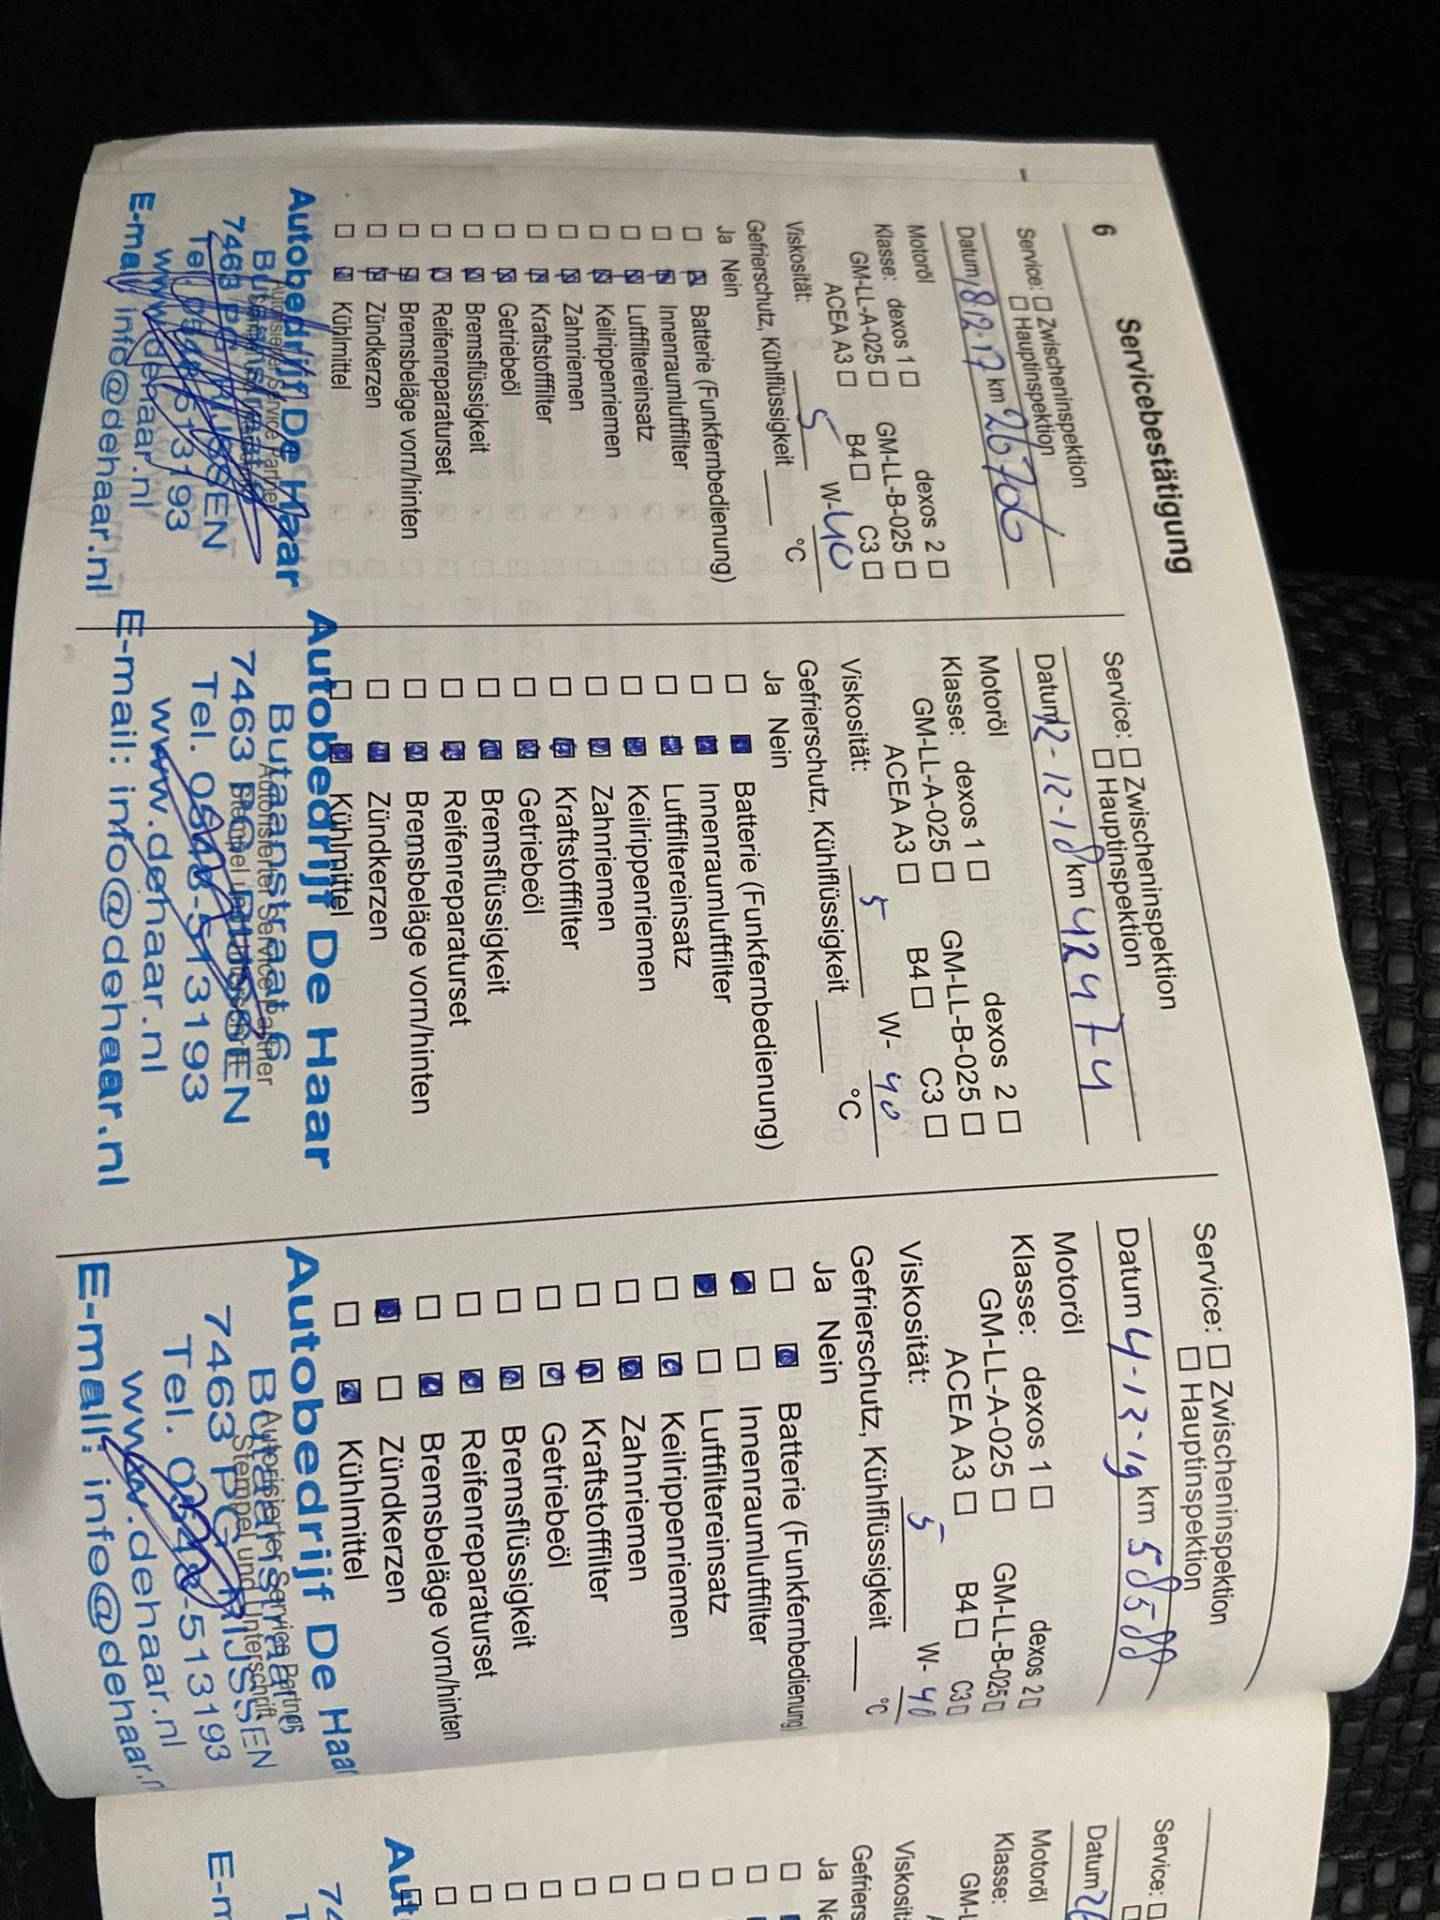 6
Servicebestätigung
Service: ☐ Zwischeninspektion
☐ Hauptinspektion
Datum 18.12.17 km 26706
Motoröl
Klasse: dexos 1 ☐ dexos 2 ☐
GM-LL-A-025 ☐ GM-LL-B-025 ☐
ACEA A3 ☐ B4 ☐ C3 ☐
Viskosität: 5 W-40
Gefrierschutz, Kühlflüssigkeit ____ °C
Ja Nein
☐ ☒ Batterie (Funkfernbedienung)
☐ ☒ Innenraumluftfilter
☐ ☒ Luftfiltereinsatz
☐ ☒ Keilrippenriemen
☐ ☒ Zahnriemen
☐ ☒ Kraftstofffilter
☐ ☒ Getriebeöl
☐ ☒ Bremsflüssigkeit
☐ ☒ Reifenreparaturset
☐ ☒ Bremsbeläge vorn/hinten
☐ ☒ Zündkerzen
☐ ☒ Kühlmittel
Autobedrijf De Haar
Autorisierter Service Partner
7463 PG RIJSSEN
Tel. 0548-513193
www.dehaar.nl
E-mail: info@dehaar.nl
Service: ☐ Zwischeninspektion
☐ Hauptinspektion
Datum 12-12-18 km 42474
Motoröl
Klasse: dexos 1 ☐ dexos 2 ☐
GM-LL-A-025 ☐ GM-LL-B-025 ☐
ACEA A3 ☐ B4 ☐ C3 ☐
Viskosität: 5 W-40
Gefrierschutz, Kühlflüssigkeit ____ °C
Ja Nein
☐ ☒ Batterie (Funkfernbedienung)
☐ ☒ Innenraumluftfilter
☐ ☒ Luftfiltereinsatz
☐ ☒ Keilrippenriemen
☐ ☒ Zahnriemen
☐ ☒ Kraftstofffilter
☐ ☒ Getriebeöl
☐ ☒ Bremsflüssigkeit
☐ ☒ Reifenreparaturset
☐ ☒ Bremsbeläge vorn/hinten
☐ ☒ Zündkerzen
☐ ☒ Kühlmittel
Autobedrijf De Haar
Butaanstraat 6
Autorisierter Service Partner
7463 PG RIJSSEN
Stempel und Unterschrift
Tel. 0548-513193
www.dehaar.nl
E-mail: info@dehaar.nl
Service: ☐ Zwischeninspektion
☐ Hauptinspektion
Datum 4-12-19 km 58588
Motoröl
Klasse: dexos 1 ☐ dexos 2 ☐
GM-LL-A-025 ☐ GM-LL-B-025 ☐
ACEA A3 ☐ B4 ☐ C3 ☐
Viskosität: 5 W-40
Gefrierschutz, Kühlflüssigkeit ____ °C
Ja Nein
☐ ☒ Batterie (Funkfernbedienung)
☒ ☐ Innenraumluftfilter
☒ ☐ Luftfiltereinsatz
☐ ☒ Keilrippenriemen
☐ ☒ Zahnriemen
☐ ☒ Kraftstofffilter
☐ ☒ Getriebeöl
☐ ☒ Bremsflüssigkeit
☐ ☒ Reifenreparaturset
☐ ☒ Bremsbeläge vorn/hinten
☒ ☐ Zündkerzen
☐ ☒ Kühlmittel
Autobedrijf De Haar
Butaanstraat 6
Autorisierter Service Partner
7463 PG RIJSSEN
Stempel und Unterschrift
Tel. 0548-513193
www.dehaar.nl
E-mail: info@dehaar.n
Service: ☐
Datum
Motoröl
Klasse:
GM-L
Viskosit
Gefriers
Ja Ne
Aut
74
T
E-m